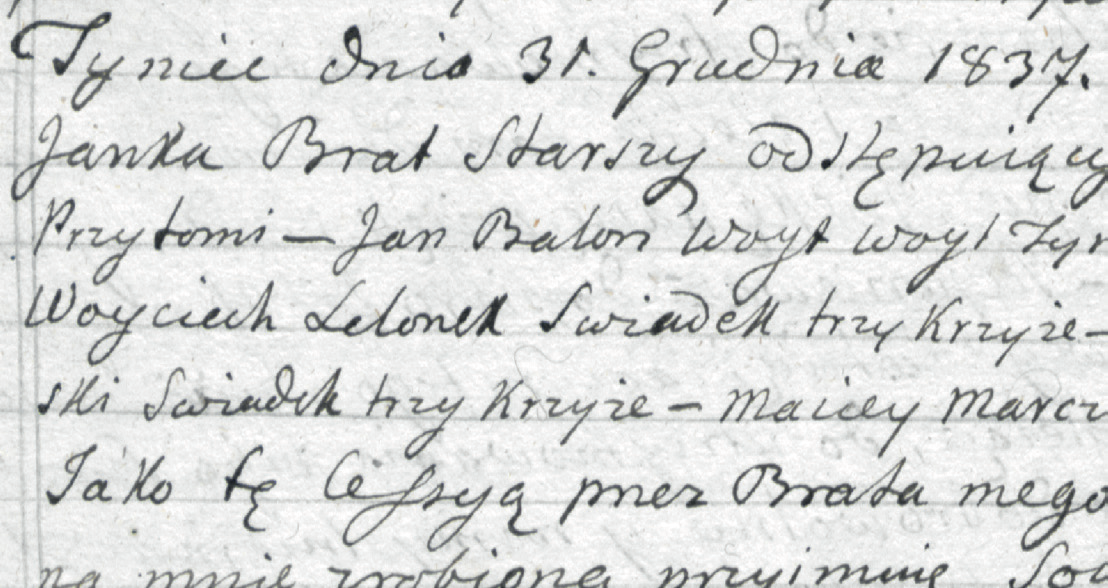 Tyniec dnia 31. Grudnia 1837.
Janka Brat Starszy odstępuiący
Przytomi — Jan Balon Woyt woyt Tyn
Woyciech Lelonek Swiadek trzy Krzyże —
ski Swiadek trzy Krzyże — Maicey Marcz
Jako tę Cessyą przez Brata mego
na mnie zrobioną przyimuię